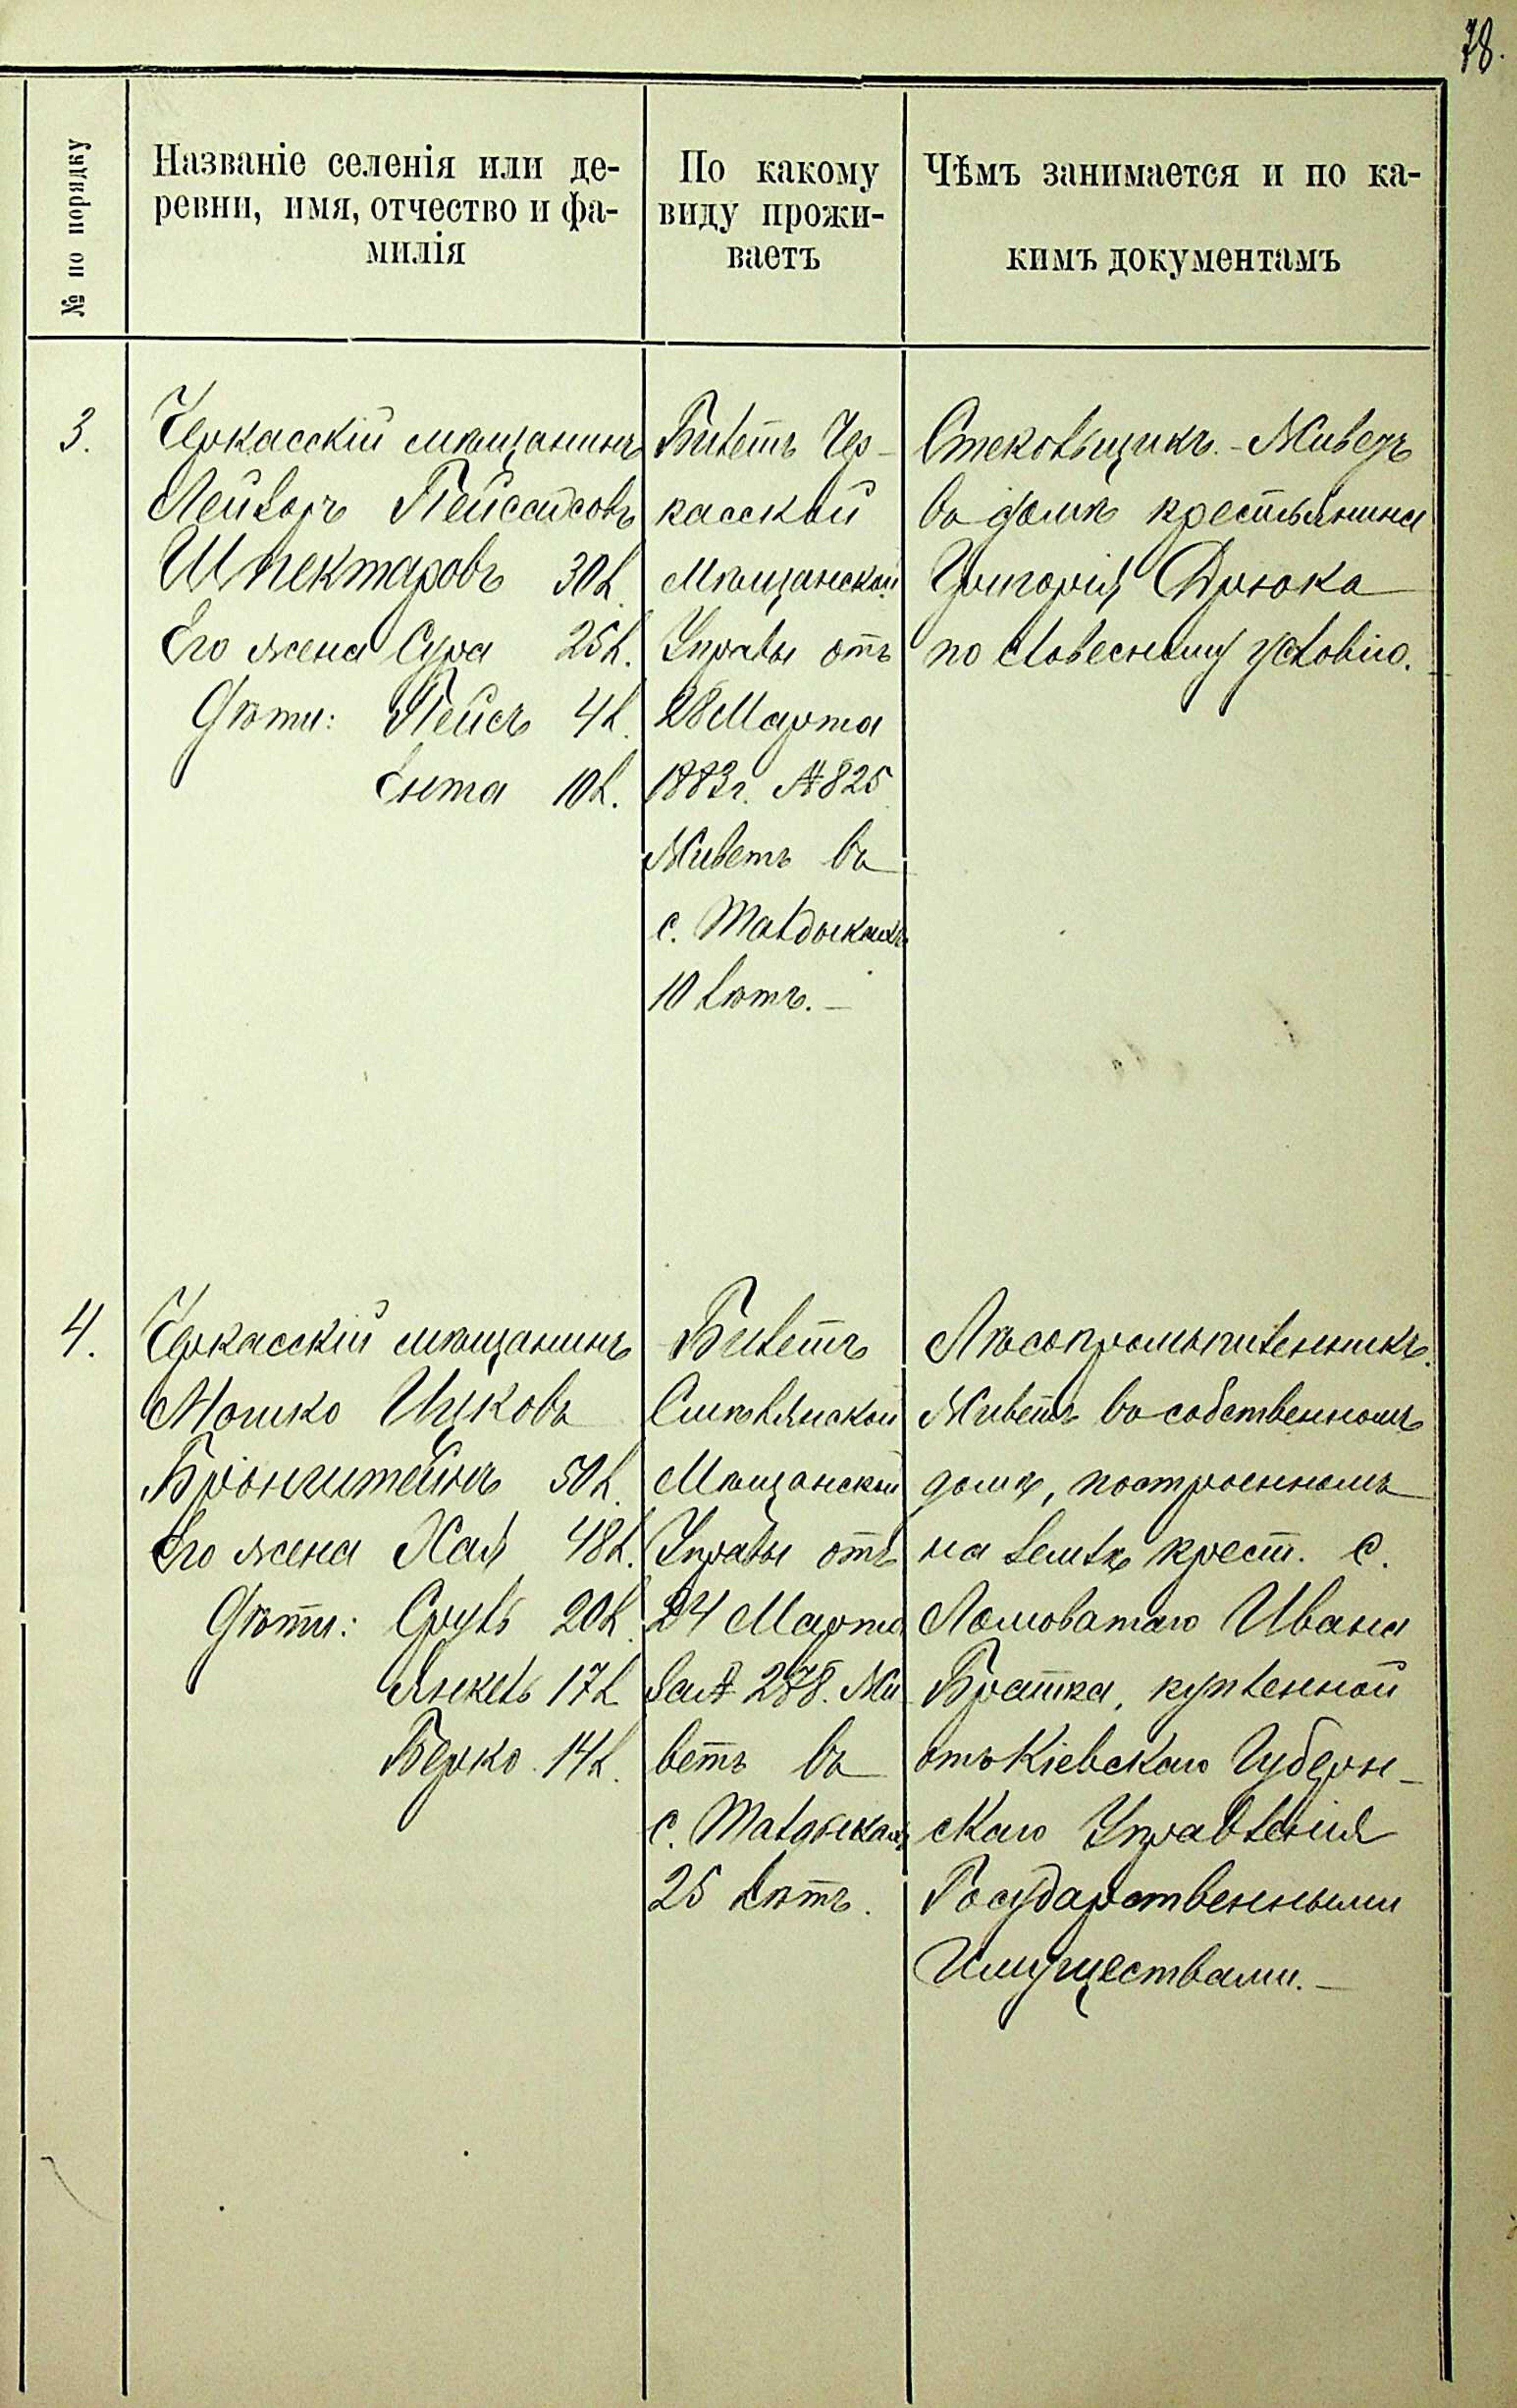 78.
№ по порядку
Названіе селенія или де-
ревни, имя, отчество и фа-
милія
По какому
виду прожи-
ваетъ
Чѣмъ занимается и по ка-
кимъ документамъ
3.
Черкасскій мѣщанинъ
Лейзоръ Пейсаховъ
Шпектаровъ 30 л.
Его жена Сура 25 л.
Дѣти: Пейсъ 4 л.
Ента 10 л.
Билетъ Чер-
касской
Мѣщанской
Управы отъ
28 Марта
1883 г. № 825
Живетъ въ
с. Талдыкахъ
10 лѣтъ. —
Стекольщикъ. - Живетъ
въ домѣ крестьянина
Григорія Дрюка
по словесному условію.
4.
Черкасскій мѣщанинъ
Мошко Ицковъ
Бронштейнъ 50 л.
Его жена Хая 48 л.
Дѣти: Сруль 20 л.
Янкель 17 л.
Берко 14 л.
Билетъ
Смѣлянской
Мѣщанской
Управы отъ
24 Марта
за № 278. Жи
ветъ въ
с. Талдыкахъ
25 лѣтъ.
Лѣсопромышленникъ.
Живетъ въ собственномъ
домѣ, построенномъ
на землѣ крест. с.
Ломоватаго Ивана
Братка, купленной
отъ Кіевскаго Губерн-
скаго Управленія
Государственными
Имуществами. —